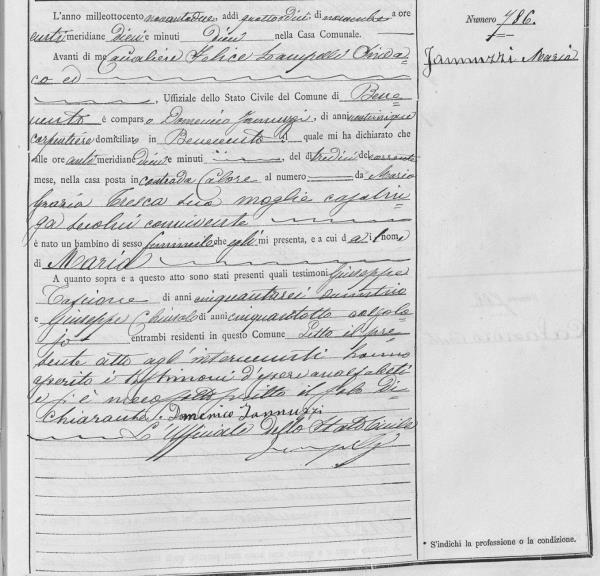 L'anno milleottocento novantadue addì quattordici di novembre a ore
anti meridiane dieci e minuti dieci nella Casa Comunale.
Avanti di me Cavaliere Felice Sinda=
co ed
Uffiziale dello Stato Civile del Comune di Bene=
vento è comparso Domenico Jannuzzi, di anni venticinque
carpentiere domiciliato in Benevento il quale mi ha dichiarato che
alle ore anti meridiane dieci e minuti del dì tredici del corrente
mese, nella casa posta in contrada Calore al numero da Maria
Grazia Tresca sua moglie casalin=
ga seco lui convivente
è nato un bambino di sesso femminile che egli mi presenta, e a cui dà il nome
di Maria
A quanto sopra e a questo atto sono stati presenti quali testimoni Giuseppe
di anni cinquantasei
e Giuseppe di anni cinquantotto calzola
jo entrambi residenti in questo Comune Letto il pre=
sente atto agl'intervenuti hanno
asserito i testimoni d'essere analfabeti
e si è meco sottoscritto il solo Di=
chiarante. Domenico Jannuzzi
L'Uffiziale dello Stato Civile
Numero 786.
Jannuzzi Maria
* S'indichi la professione o la condizione.